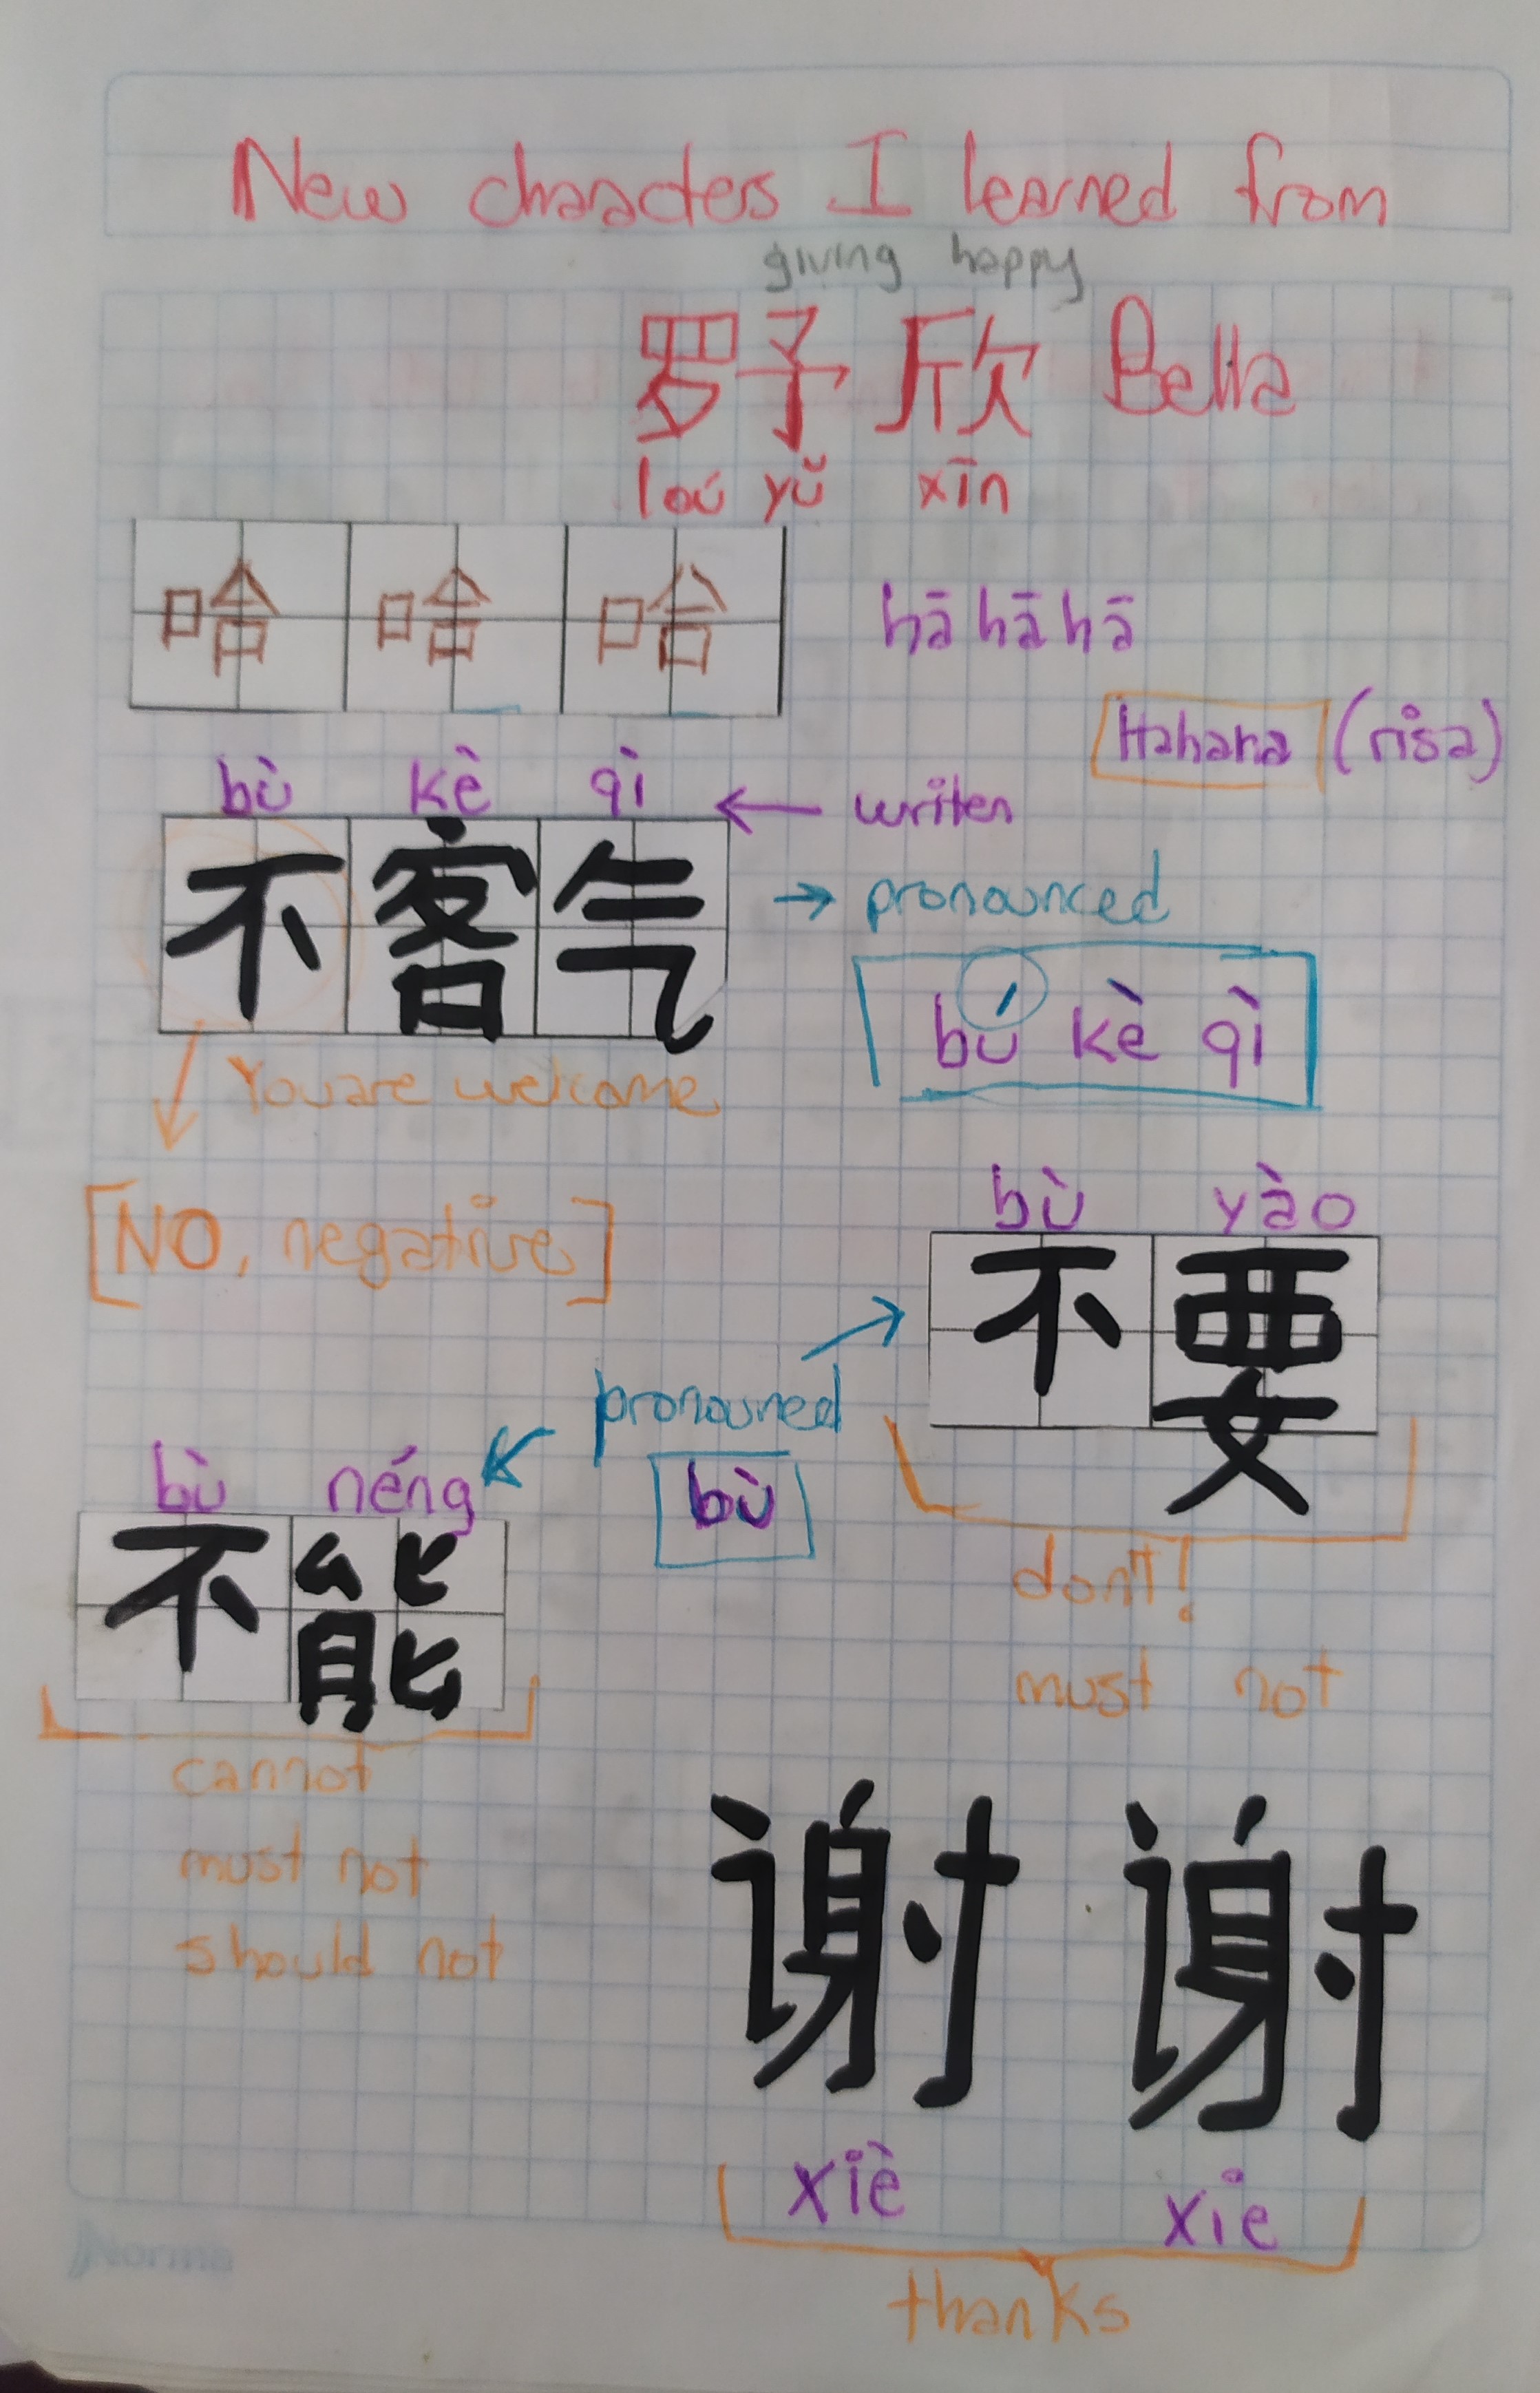 New characters I learned from
giving happy
罗予欣 Bella
loú yǔ xīn
哈哈哈 hā hā hā
Hahaha (risa)
bù kè qì ← writen
不客气 → pronounced
bú kè qì
You are welcome
[NO, negative]
bù yào
不要
pronouned
bù
bù néng
不能
don't!
must not
cannot
must not
should not
谢谢
xiè xie
thanks
Norma